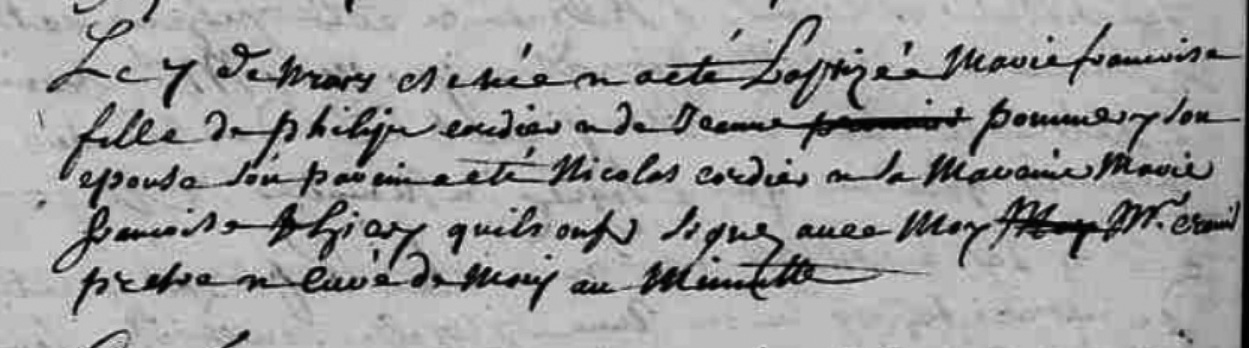 Le 7 de mars est née n a eté baptizéé Marie francoise
fille de philipe cordier n de Jeanne pommery son
epouse son parin a eté Nicolas cordier n la Maraine Marie
francoise thiery quils onst signez avec Moy Mr.
pretre n curé de au Minutte